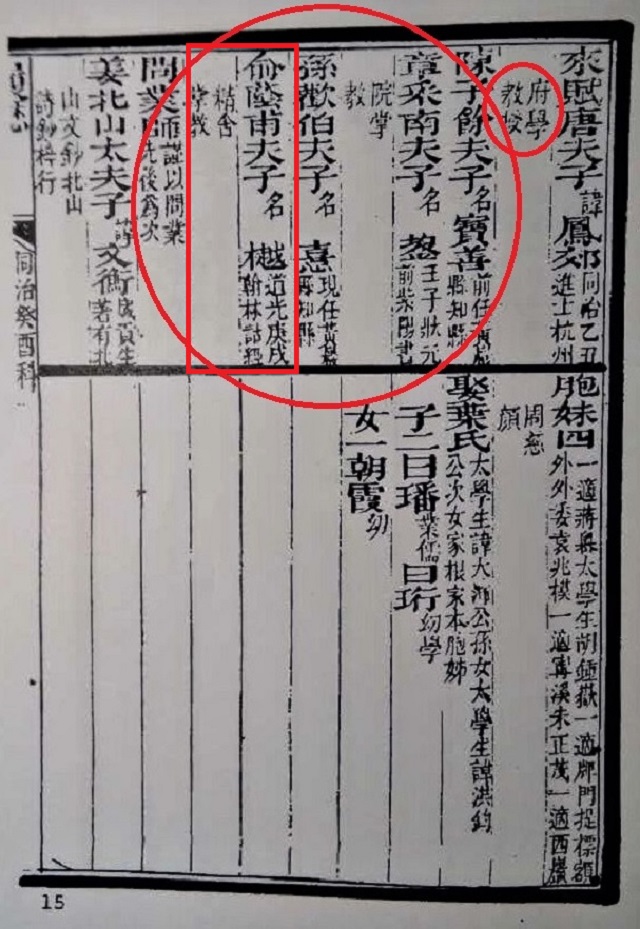 來賦唐夫子 諱 鳳郊 同治乙丑進士杭州
府學教授
陳子餘夫子 名 寶善 前任 縣知縣
章采南夫子 名 壬子狀元前 書
院掌教
孫歡伯夫子 名 憙 現任黃巖縣知縣
俞蔭甫夫子 名 樾 道光庚戌翰林詁經
精舍掌教
問業師 諱以問業先後為次
姜北山太夫子 諱 文衡 歲貢生著有北
山文鈔北山詩鈔梓行
胞妹四 一適蔣 太學生胡鍾嶽一適 門 標額外外委袁兆模一適寗溪朱正茂一適西
周慈顏
娶葉氏 太學生諱大 公孫女太學生諱洪鈞公次女家根家本胞姊
子二曰璠 業儒 曰珩 幼學
女一朝霞 幼
同治癸酉科
15